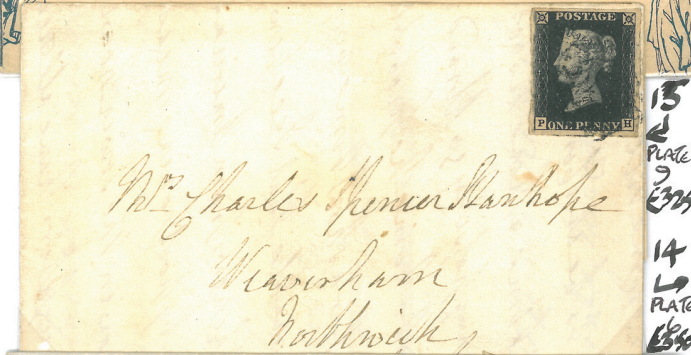 POSTAGE
P ONE PENNY H
Mrs Charles Spencer Stanhope
Weaverham
Northwich
15
PLATE
9
£325
14
PLATE
6